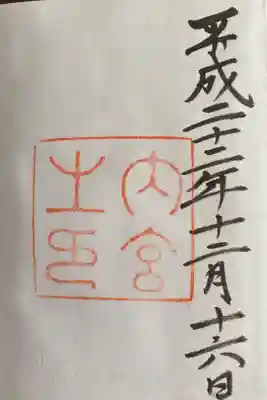 平成二十三年十二月十六日
内宮
之印